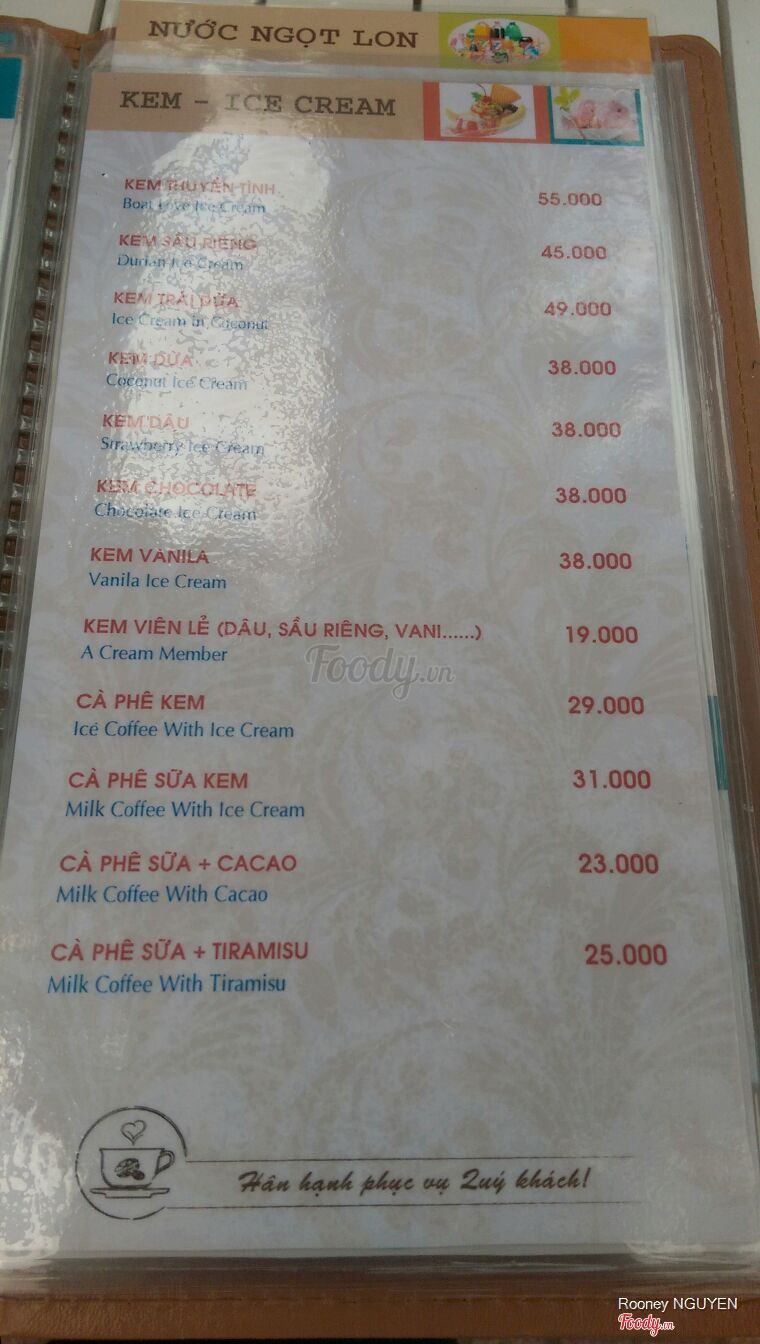 NƯỚC NGỌT LON
KEM - ICE CREAM
KEM THUYỀN TÌNH 55.000
Boat Love Ice Cream
KEM SẦU RIÊNG 45.000
Durian Ice Cream
KEM TRÁI DỪA 49.000
Ice Cream in Coconut
KEM DỪA 38.000
Coconut Ice Cream
KEM DÂU 38.000
Strawberry Ice Cream
KEM CHOCOLATE 38.000
Chocolate Ice Cream
KEM VANILA 38.000
Vanila Ice Cream
KEM VIÊN LẺ (DÂU, SẦU RIÊNG, VANI......) 19.000
A Cream Member
CÀ PHÊ KEM 29.000
Ice Coffee With Ice Cream
CÀ PHÊ SỮA KEM 31.000
Milk Coffee With Ice Cream
CÀ PHÊ SỮA + CACAO 23.000
Milk Coffee With Cacao
CÀ PHÊ SỮA + TIRAMISU 25.000
Milk Coffee With Tiramisu
Hân hạnh phục vụ Quý khách!
Foody.vn
Rooney NGUYEN
Foody.vn